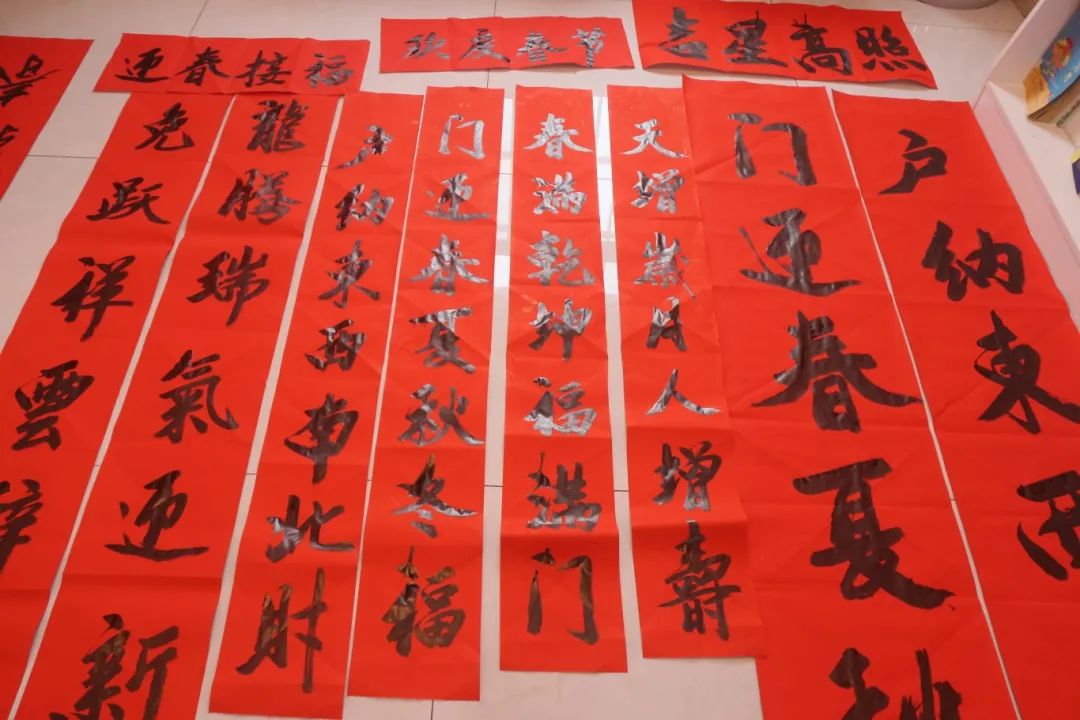 迎春接福
欢度春节
吉星高照
户纳東西
门迎春夏秋
天增歲月人增壽
春满乾坤福满门
门迎春夏秋冬福
户纳東西南北财
龍腾瑞氣迎新
兔跃祥雲辞